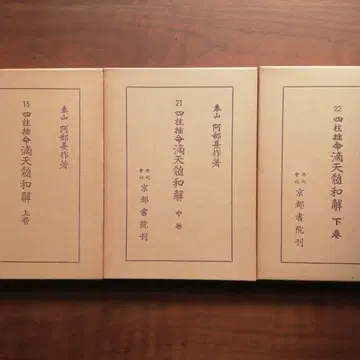 泰山 阿部熹作著
15 四柱推命 滴天髓和解 上巻
泰山 阿部熹作著
21 四柱推命 滴天髓和解 中巻
株式会社 京都書院刊
22 四柱推命 滴天髓和解 下巻
株式会社 京都書院刊